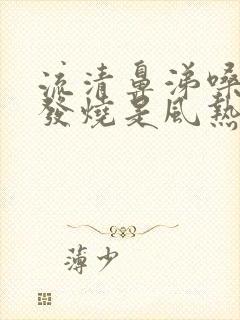 流清鼻涕嗓
發燒是風熱
薄少